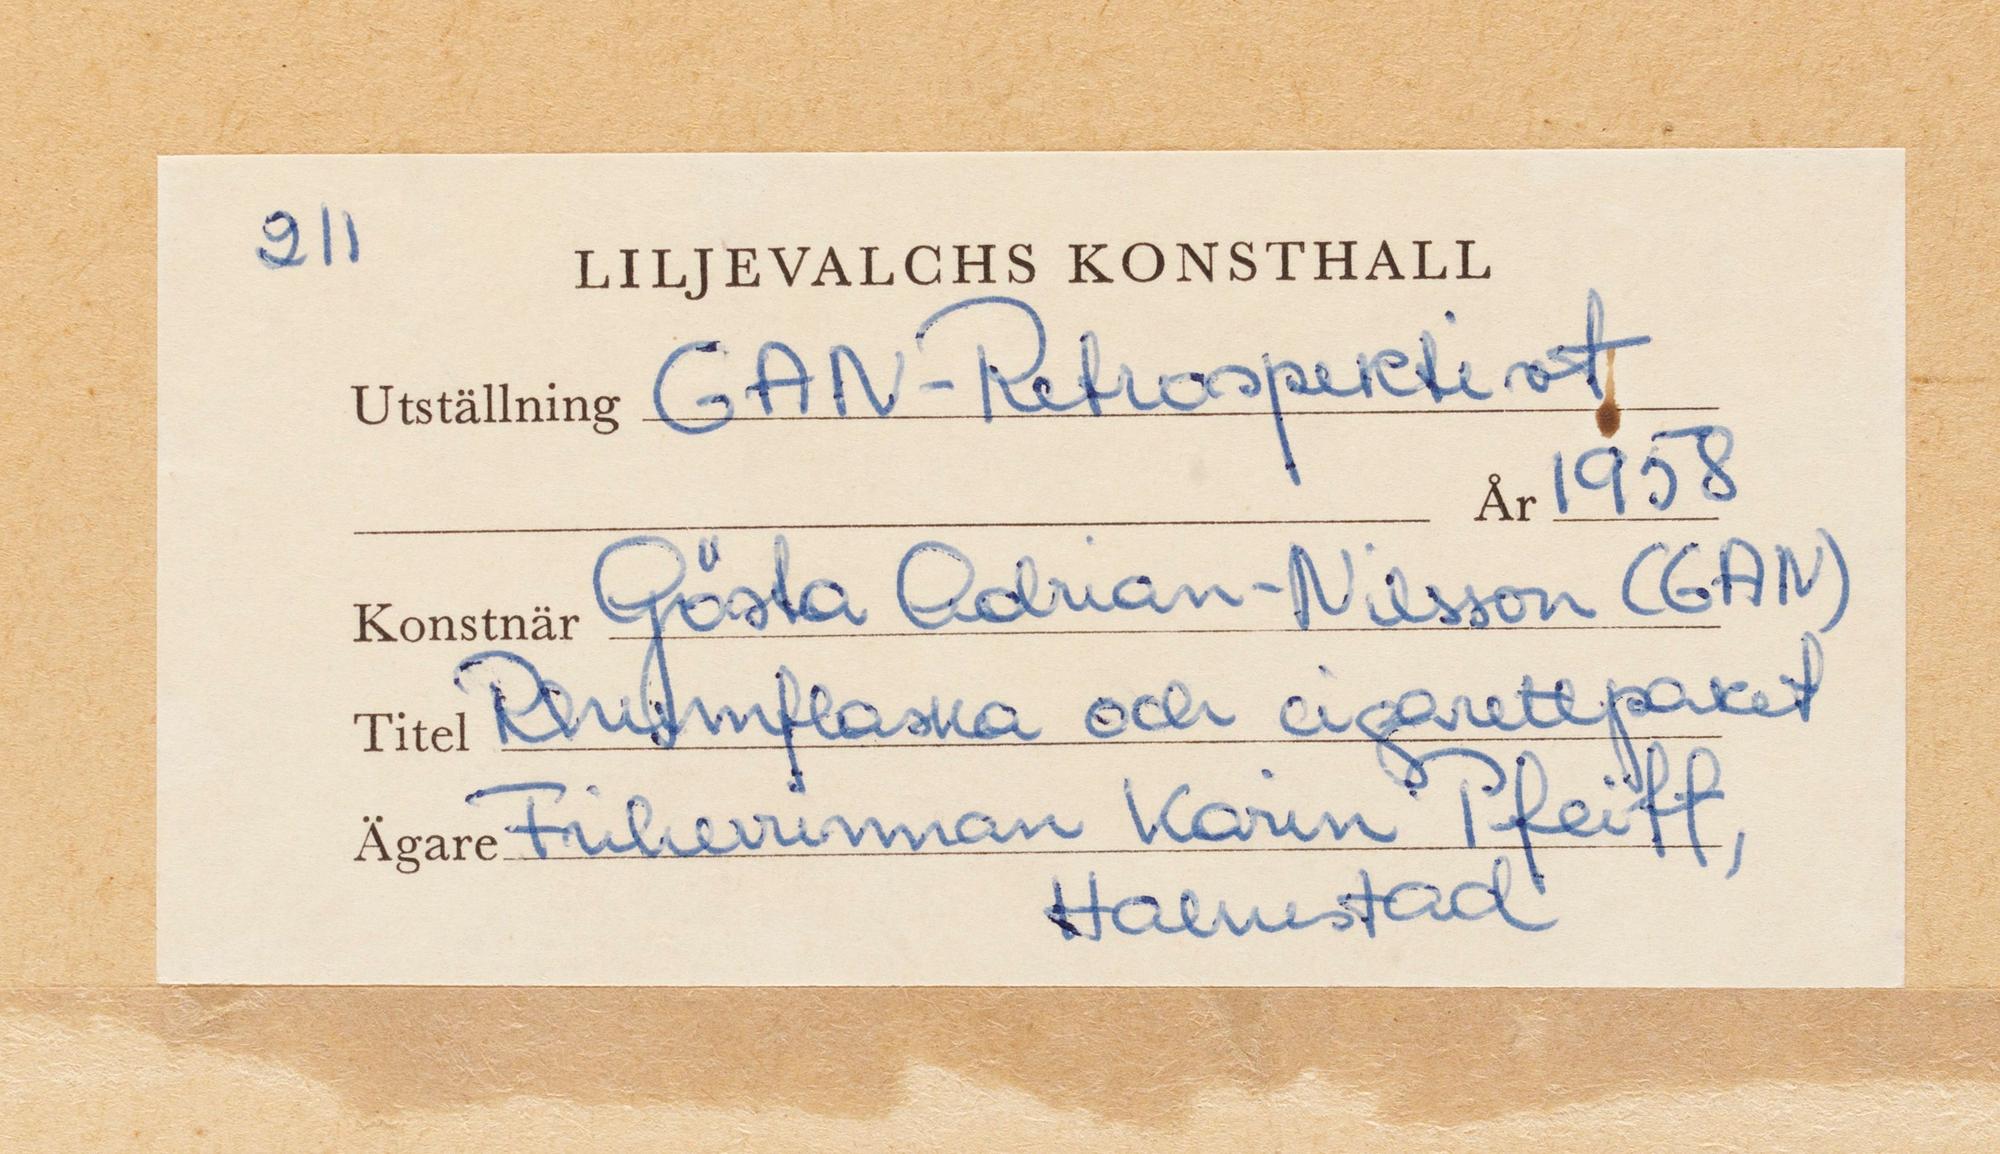 211
LILJEVALCHS KONSTHALL
Utställning GAN-Retrospektivt
År 1958
Konstnär Gösta Adrian-Nilsson (GAN)
Titel flaska och cigarettpaket
Ägare Friherrinnan Karin Pfeiff,
Halmstad